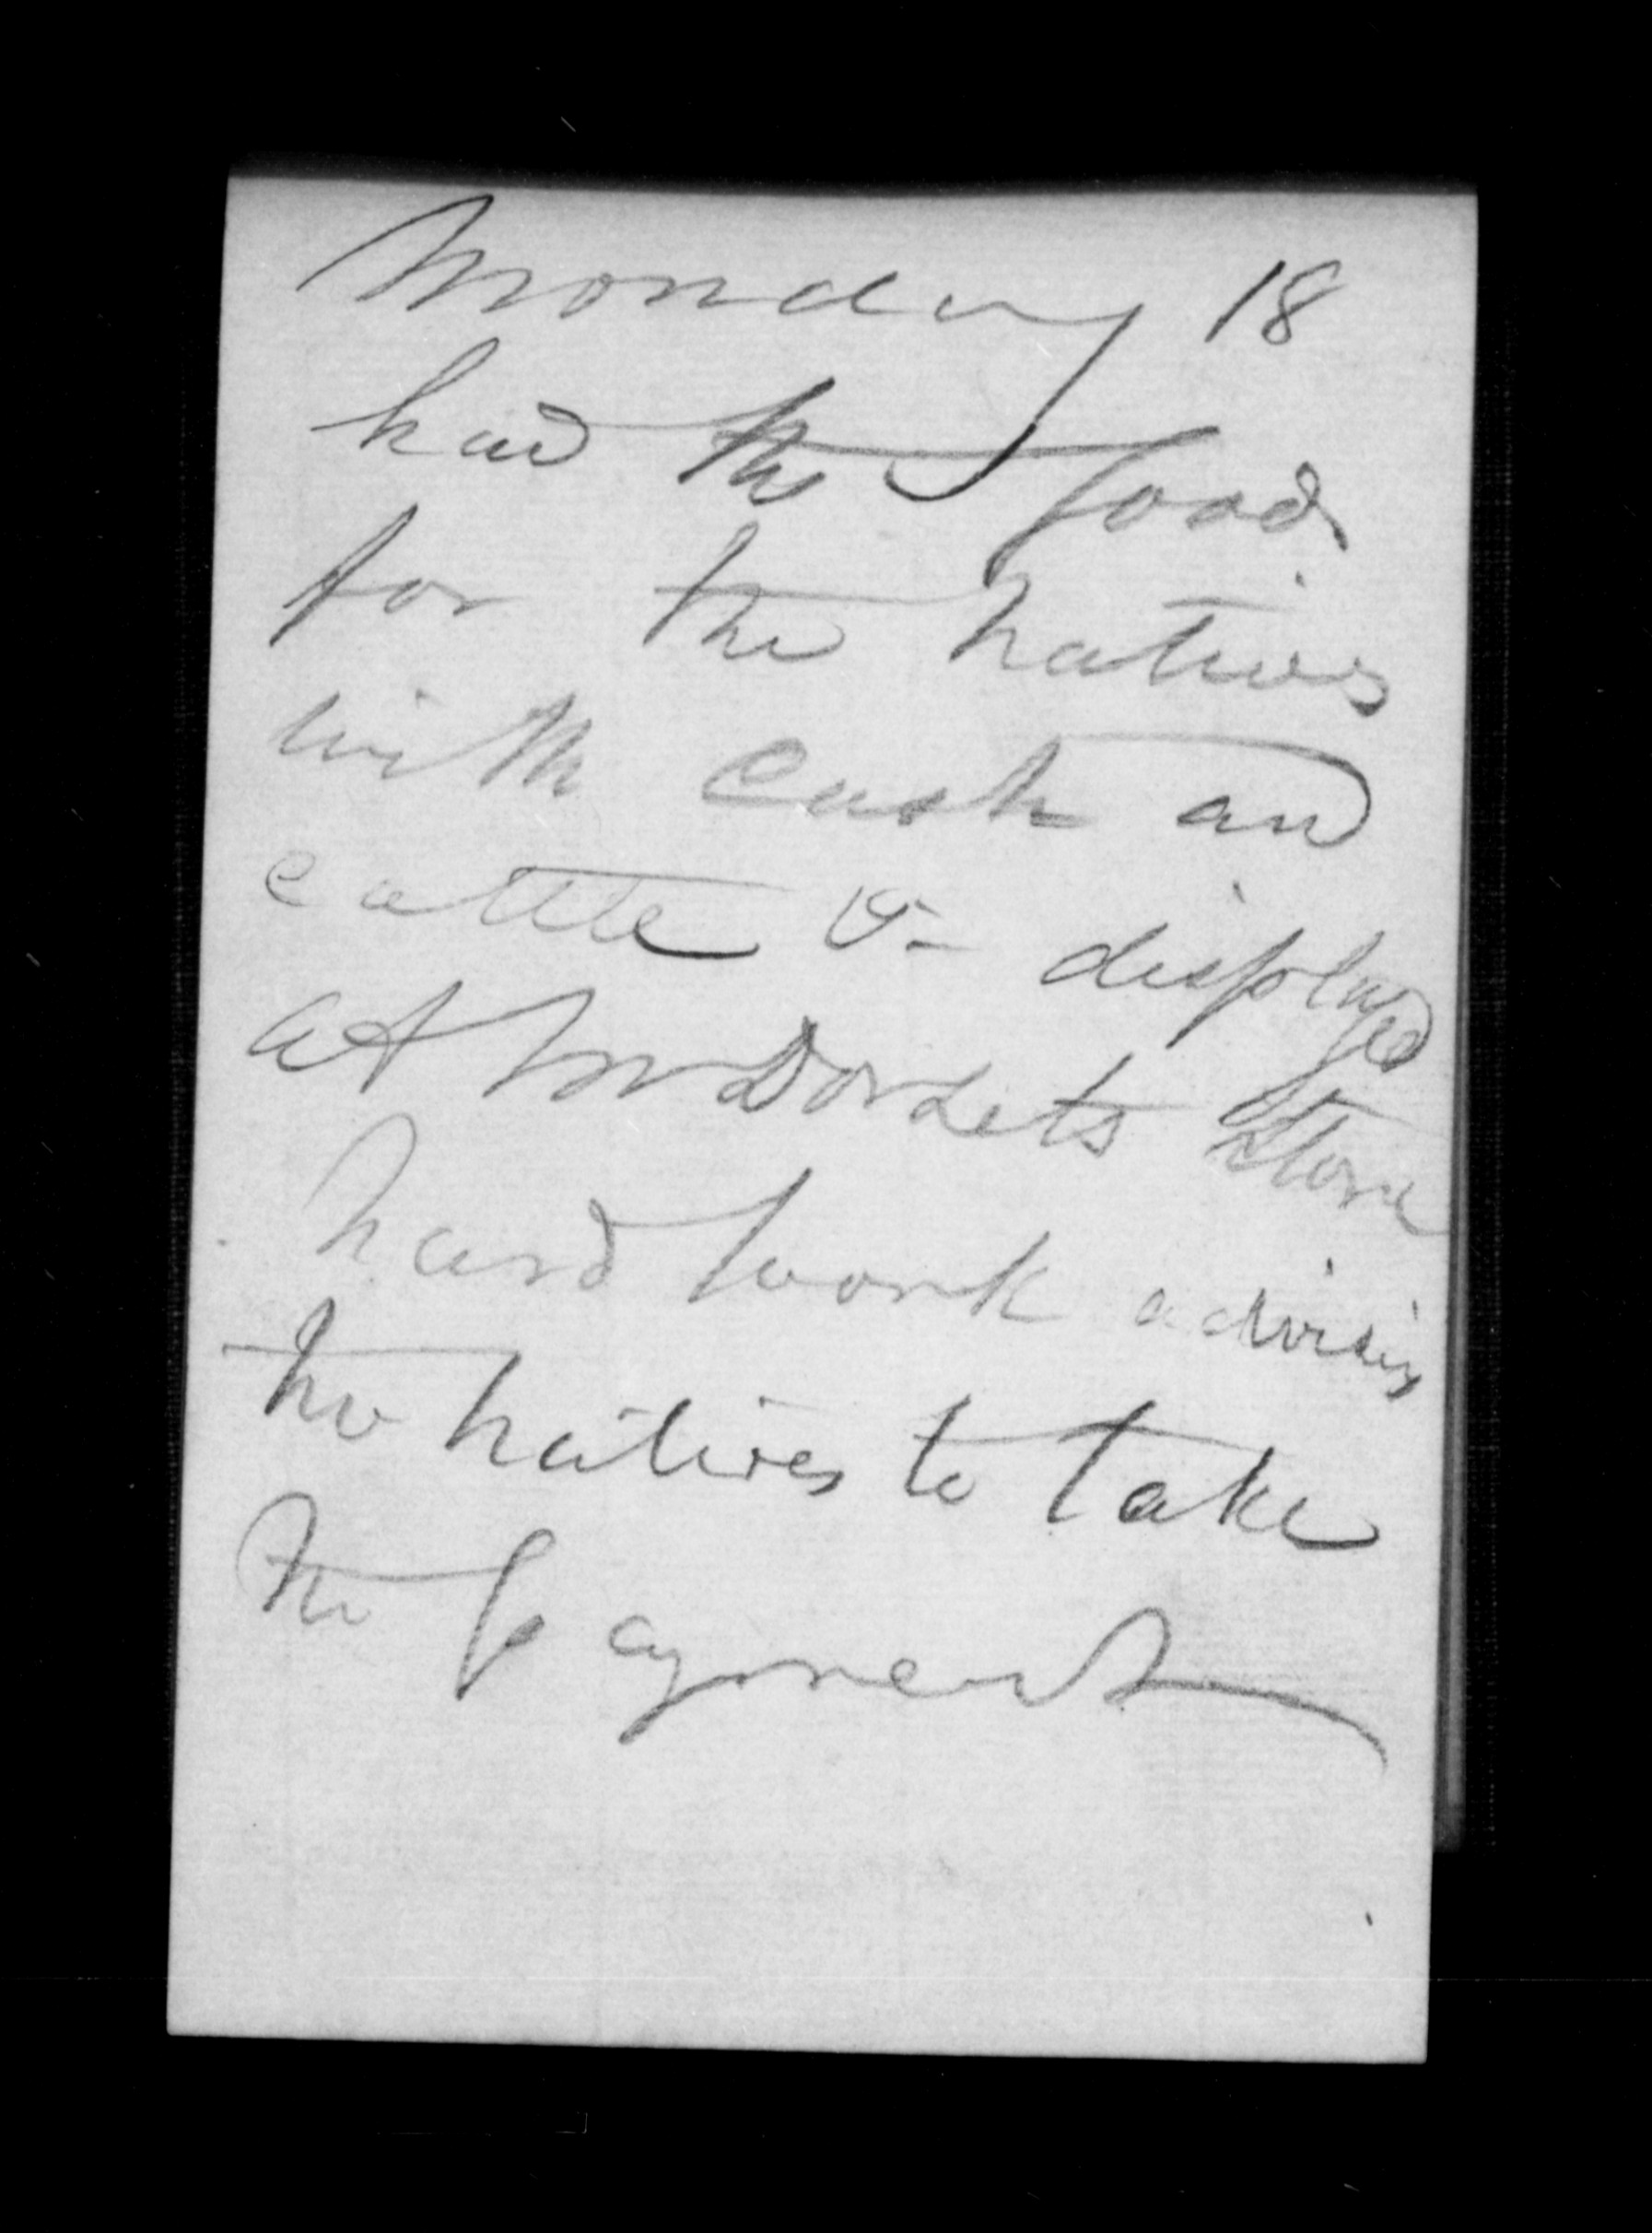 Monday 18
had the food
for the natives
with Cash and
cattle &c displayed
at Mr Dorsets Store
hard work advising
the natives to take
the payment